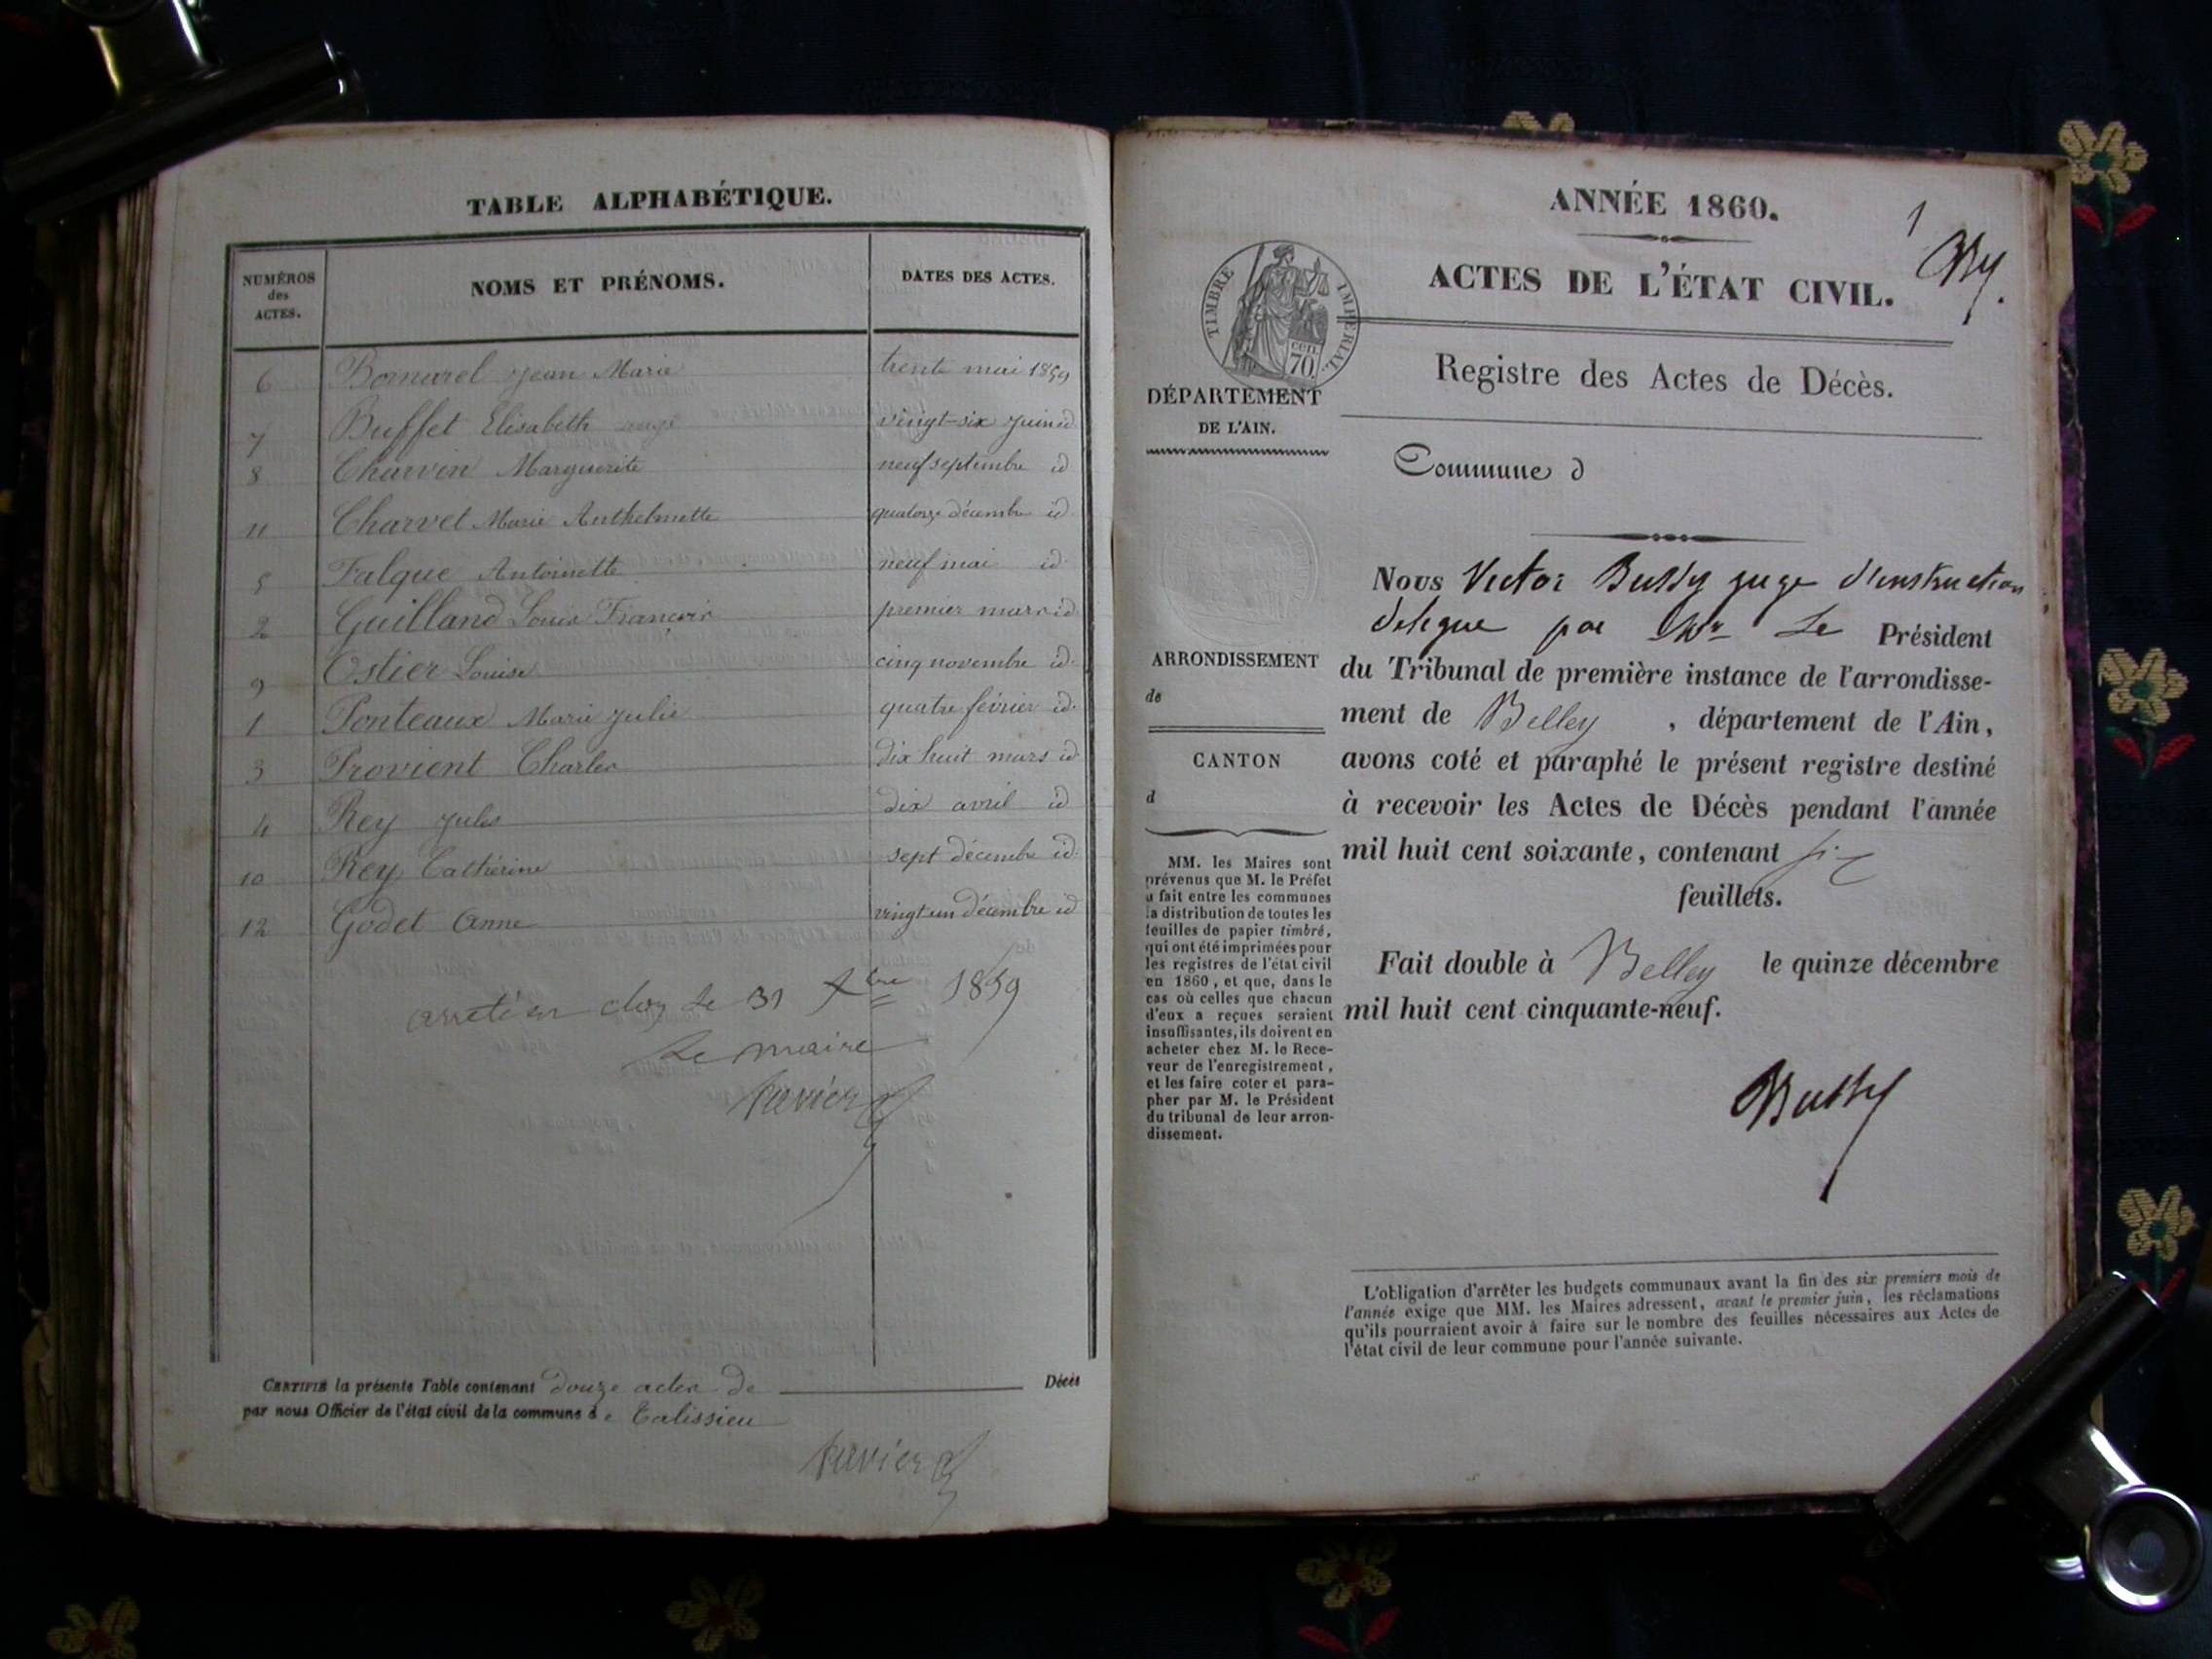 TABLE ALPHABÉTIQUE.
NUMÉROS
des
ACTES.
NOMS ET PRÉNOMS.
DATES DES ACTES.
6 Bornarel Jean Marie trente mai 1859
7 Buffet Elisabeth vingt-six juin id
8 Charvin Marguerite neuf septembre id
11 Charvet Marie Anthelmette quatorze décembre id
5 Falque Antoinette neuf mai id
2 Guilland Louis François premier mars id
9 Ostier Louise cinq novembre id
1 Ponteaux Marie Julie quatre février id
3 Provient Charles dix huit mars id
4 Rey Jules dix avril id
10 Rey Cathérine sept décembre id
12 Godet Anne vingt un décembre id
clos le 31 Xbre 1859
Le maire
CERTIFIÉ la présente Table contenant douze actes de Décès
par nous Officier de l'état civil de la commune de Talissieu
ANNÉE 1860.
1
ACTES DE L'ÉTAT CIVIL.
TIMBRE IMPÉRIAL.
70.
cen.
Registre des Actes de Décès.
DÉPARTEMENT
DE L'AIN.
Commune d
Nous Victor Bussy juge d'instruction
delegue par Mr Le Président
du Tribunal de première instance de l'arrondisse-
ment de Belley , département de l'Ain,
avons coté et paraphé le présent registre destiné
à recevoir les Actes de Décès pendant l'année
mil huit cent soixante, contenant six
feuillets.
Fait double à Belley le quinze décembre
mil huit cent cinquante-neuf.
Bussy
ARRONDISSEMENT
de
CANTON
d
MM. les Maires sont
prévenus que M. le Préfet
a fait entre les communes
la distribution de toutes les
feuilles de papier timbré,
qui ont été imprimées pour
les registres de l'état civil
en 1860, et que, dans le
cas où celles que chacun
d'eux a reçues seraient
insuffisantes, ils doivent en
acheter chez M. le Rece-
veur de l'enregistrement,
et les faire coter et para-
pher par M. le Président
du tribunal de leur arron-
dissement.
L'obligation d'arrêter les budgets communaux avant la fin des six premiers mois de
l'année exige que MM. les Maires adressent, avant le premier juin, les réclamations
qu'ils pourraient avoir à faire sur le nombre des feuilles nécessaires aux Actes de
l'état civil de leur commune pour l'année suivante.